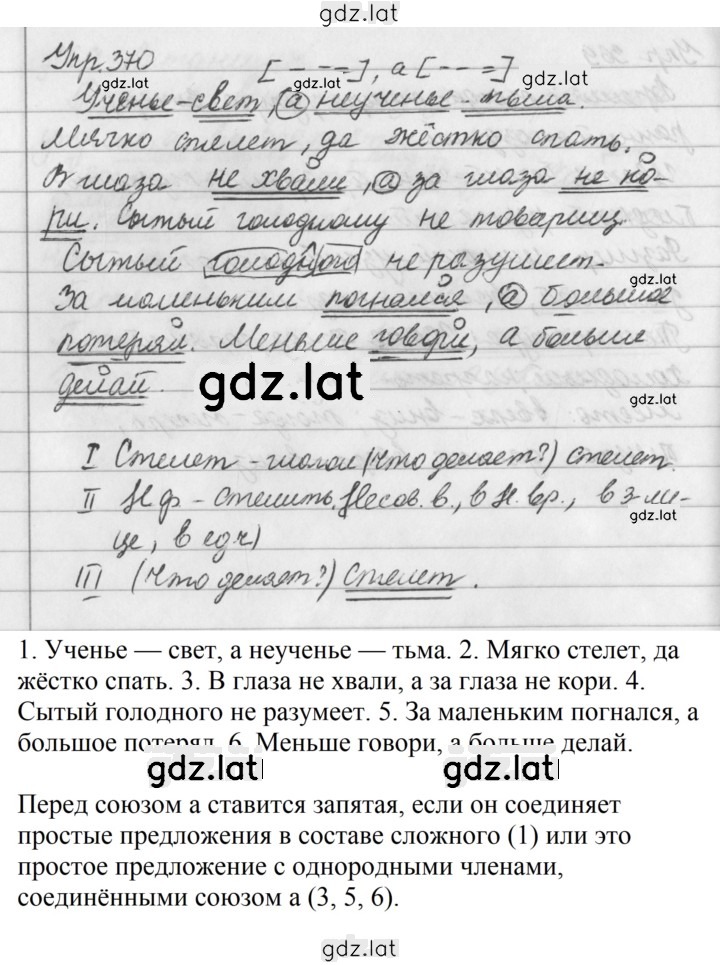 gdz.lat
Упр. 370 [- - - ==], а [- - - =]
gdz.lat gdz.lat
Ученье-свет, а неученье-тьма.
gdz.lat gdz.lat
Мягко стелет, да жёстко спать.
В глаза не хвали, а за глаза не ко-
ри. Сытый голодному не товарищ.
Сытый голодного не разумеет.
gdz.lat gdz.lat
За маленьким погнался, а большое
потерял. Меньше говори, а больше
делай.
gdz.lat
gdz.lat
I Стелет - глагол (что делает?) стелет.
gdz.lat
II Н.ф. - стелить. Несов. в., в н. вр., в 3 ли-
gdz.lat
це, в ед.ч)
III (что делает?) стелет.
gdz.lat
1. Ученье — свет, а неученье — тьма. 2. Мягко стелет, да
жёстко спать. 3. В глаза не хвали, а за глаза не кори. 4.
Сытый голодного не разумеет. 5. За маленьким погнался, а
большое потерял. 6. Меньше говори, а больше делай.
gdz.lat gdz.lat
Перед союзом а ставится запятая, если он соединяет
простые предложения в составе сложного (1) или это
простое предложение с однородными членами,
соединёнными союзом а (3, 5, 6).
gdz.lat